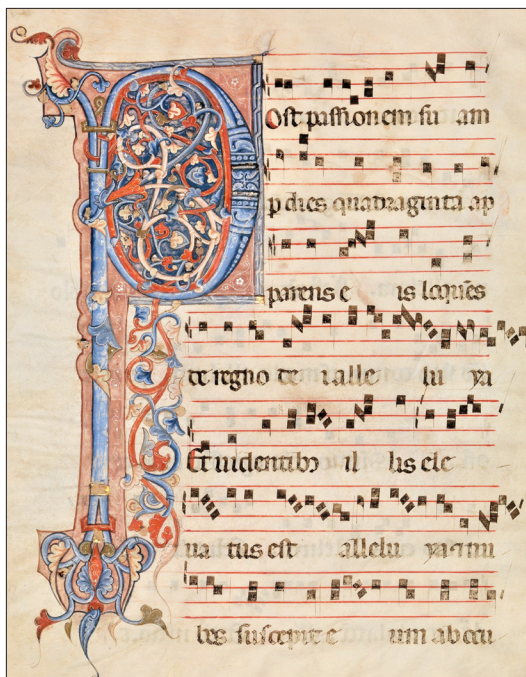 POst passionem su am
ꝑ dies quadraginta ap
parens e is loquēs
de regno de i alle lu ya
Et uidentibꝫ il lis ele
ua tus est allelu ya ⁊ nu
bes suscepit e um ab ocu